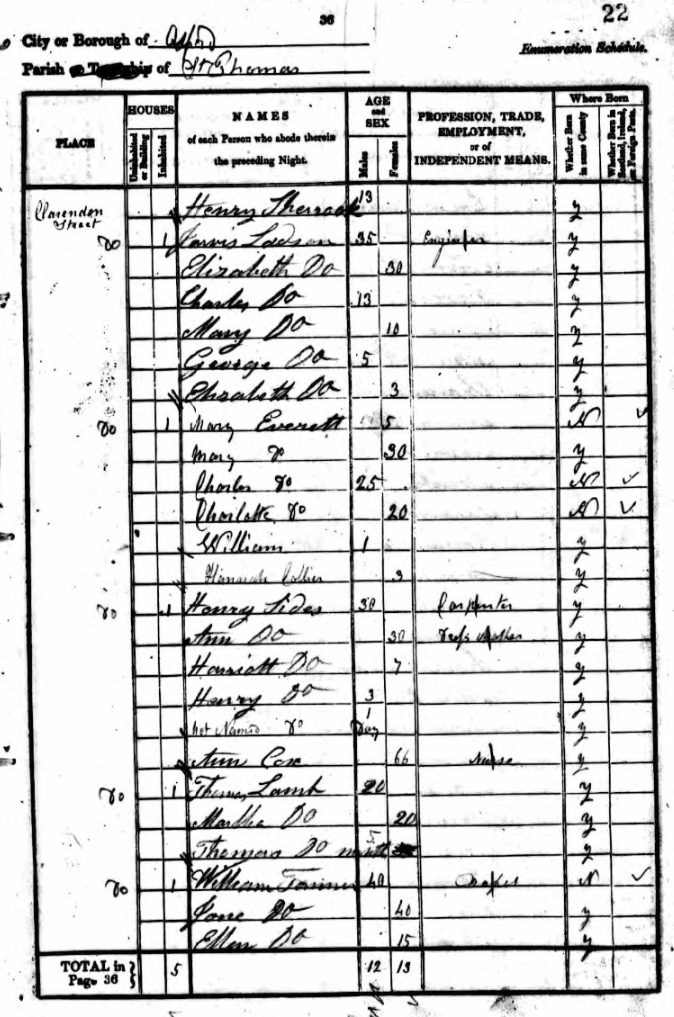 36
22
City or Borough of Oxford
Enumeration Schedule.
Parish of St Thomas
PLACE
HOUSES
Uninhabited or Building
Inhabited
NAMES
of each Person who abode therein
the preceding Night.
AGE
and
SEX
Males
Females
PROFESSION, TRADE,
EMPLOYMENT,
or of
INDEPENDENT MEANS.
Where Born
Whether Born in same County
Whether Born in Scotland, Ireland, or Foreign Parts.
Clarendon Street Henry 13 y
Do 1 Jarvis 35 Engineer y
Elizabeth Do 30 y
Charles Do 13 y
Mary Do 10 y
George Do 5 y
Elizabeth Do 3 y
Do 1 Mary Everett 5 N ✓
Mary Do 30 y
Charles Do 25 N ✓
Charlotte Do 20 N ✓
William 1 y
Hannah Collier 3 y
Do 1 Henry Sides 30 Carpenter y
Ann Do 30 y
Harriott Do 7 y
Henry Do 3 y
Not Named Do 1 Day y
Ann Cox 66 Nurse y
Do 1 Thomas Lamb 20 y
Martha Do 20 y
Thomas Do y
Do 1 William 40 N ✓
Jane Do 40 y
Ellen Do 15 y
TOTAL in Page 36 5 12 13